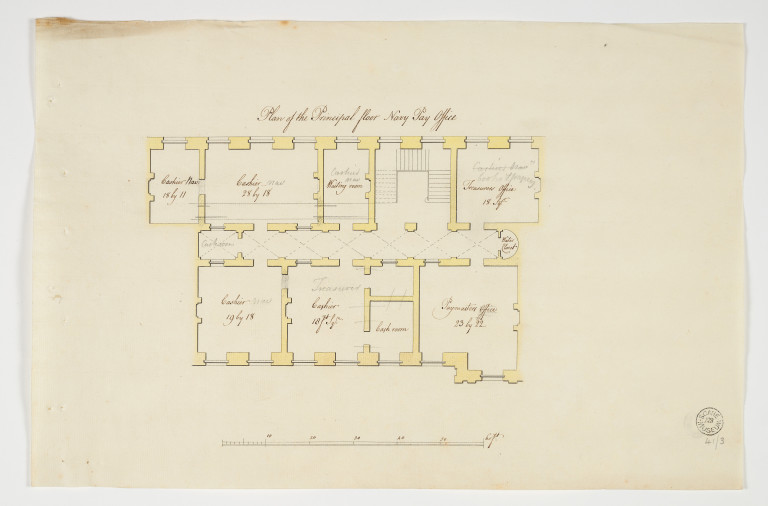 Plan of the Principal floor Navy Pay Office
Cashier Nav
18 by 11
Cashier nav
28 by 18
Cashier
nav
Waiting room
Treasurers Office
18 Sqr
Water
Closet
Cashier nav
19 by 18
Treasurer
Cashier
18ft Sqr
Cash room
Paymasters Office
23 by 22
10
20
30
40
50
60 ft
SOANE
MUSEUM
41/3